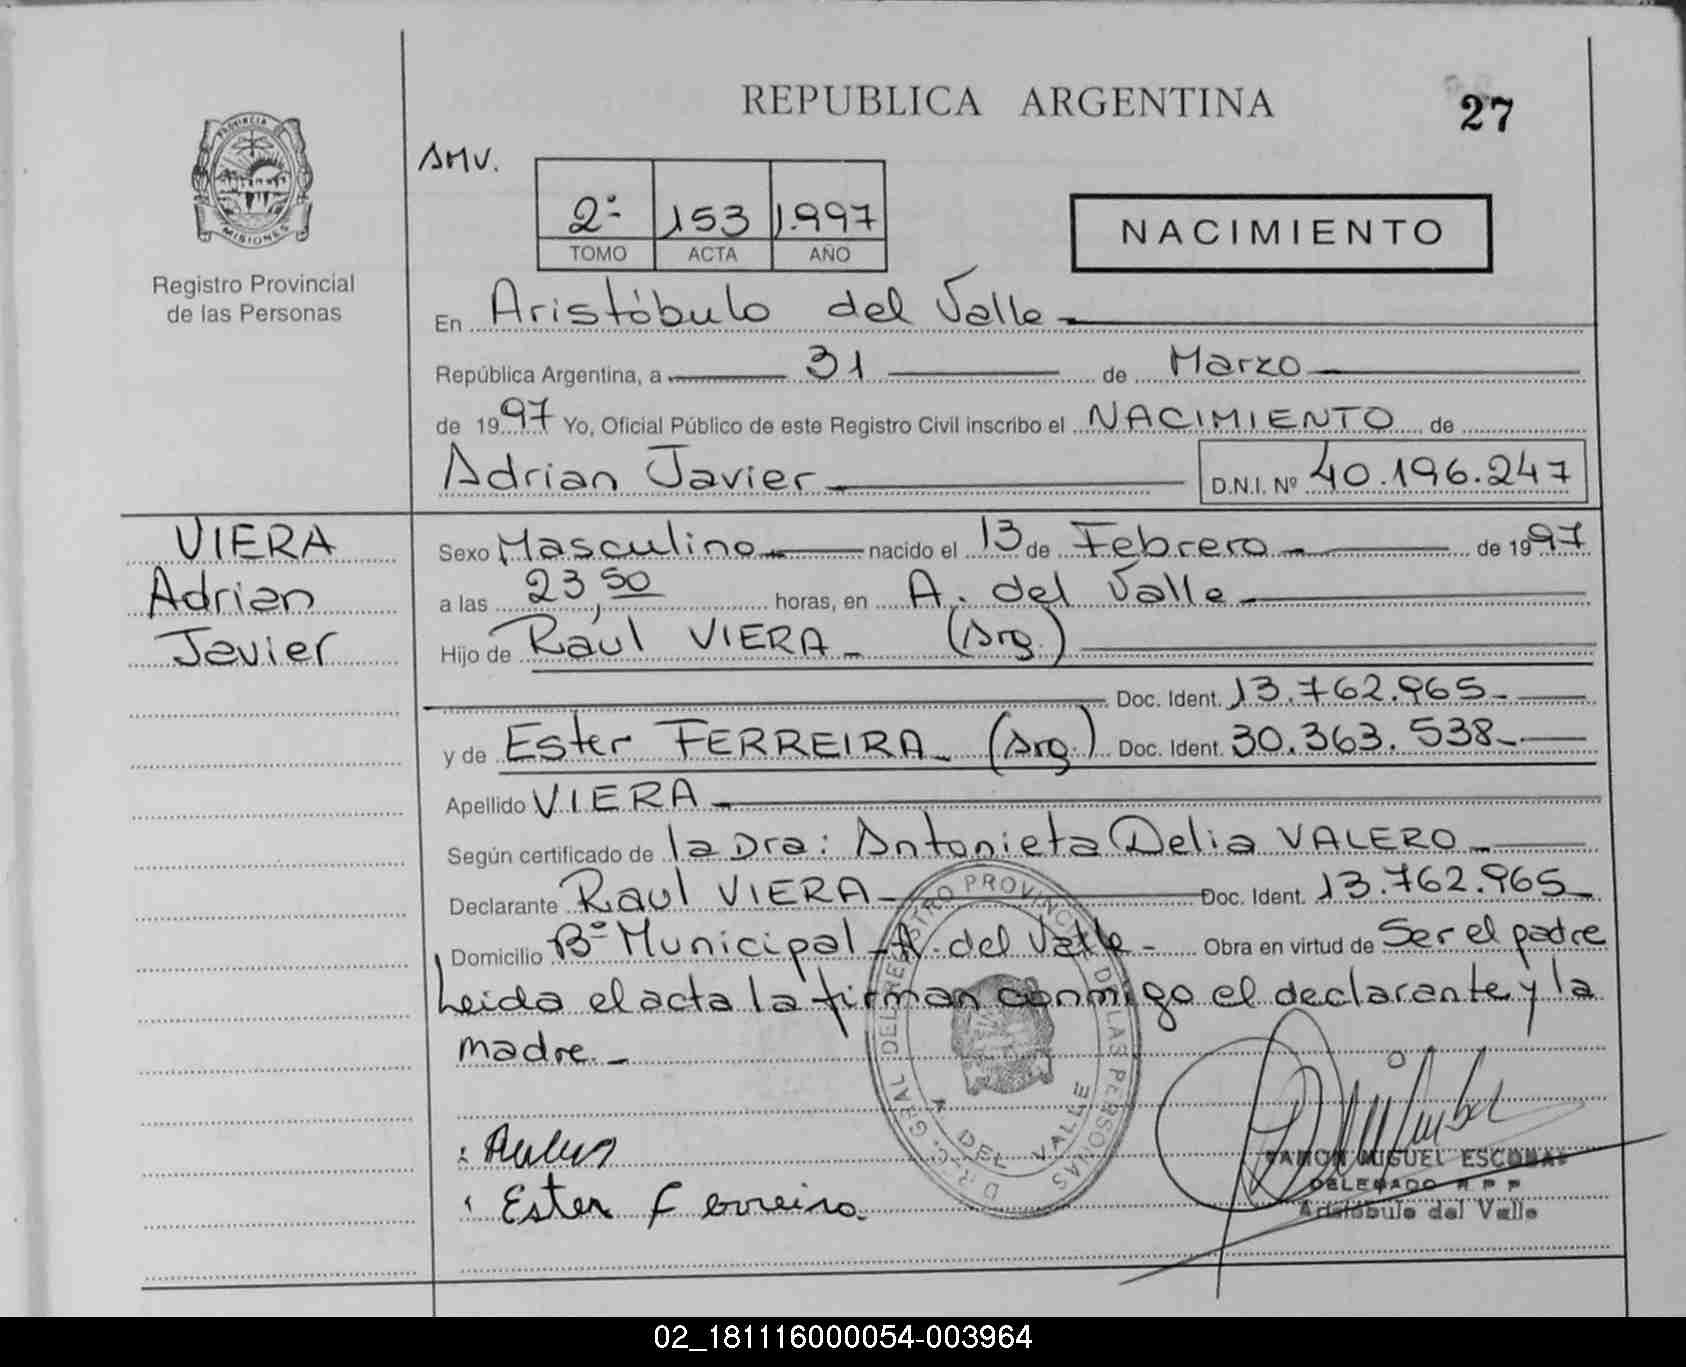 REPUBLICA ARGENTINA
27
PROVINCIA DE
MISIONES
Registro Provincial
de las Personas
AMV.
2º 153 1.997
TOMO ACTA AÑO
NACIMIENTO
En Aristóbulo del Valle
República Argentina, a 31 de Marzo
de 1997 Yo, Oficial Público de este Registro Civil inscribo el NACIMIENTO de
Adrian Javier D.N.I. Nº 40.196.247
VIERA
Adrian
Javier
Sexo Masculino nacido el 13 de Febrero de 1997
a las 23,50 horas, en A. del Valle
Hijo de Raúl VIERA (Arg.)
Doc. Ident. 13.762.965
y de Ester FERREIRA (Arg.) Doc. Ident. 30.363.538
Apellido VIERA
Según certificado de la Dra: Antonieta Delia VALERO
Declarante Raul VIERA Doc. Ident. 13.762.965
Domicilio Bº Municipal - A. del Valle - Obra en virtud de Ser el padre
Leida el acta la firman conmigo el declarante y la
madre.
D.R.C. GRAL DEL REGISTRO PROVINCIAL DE LAS PERSONAS
A DEL VALLE
Ester Ferreira
RAMON MIGUEL ESCOBAR
DELEGADO R P P
Aristóbulo del Valle
02_181116000054-003964